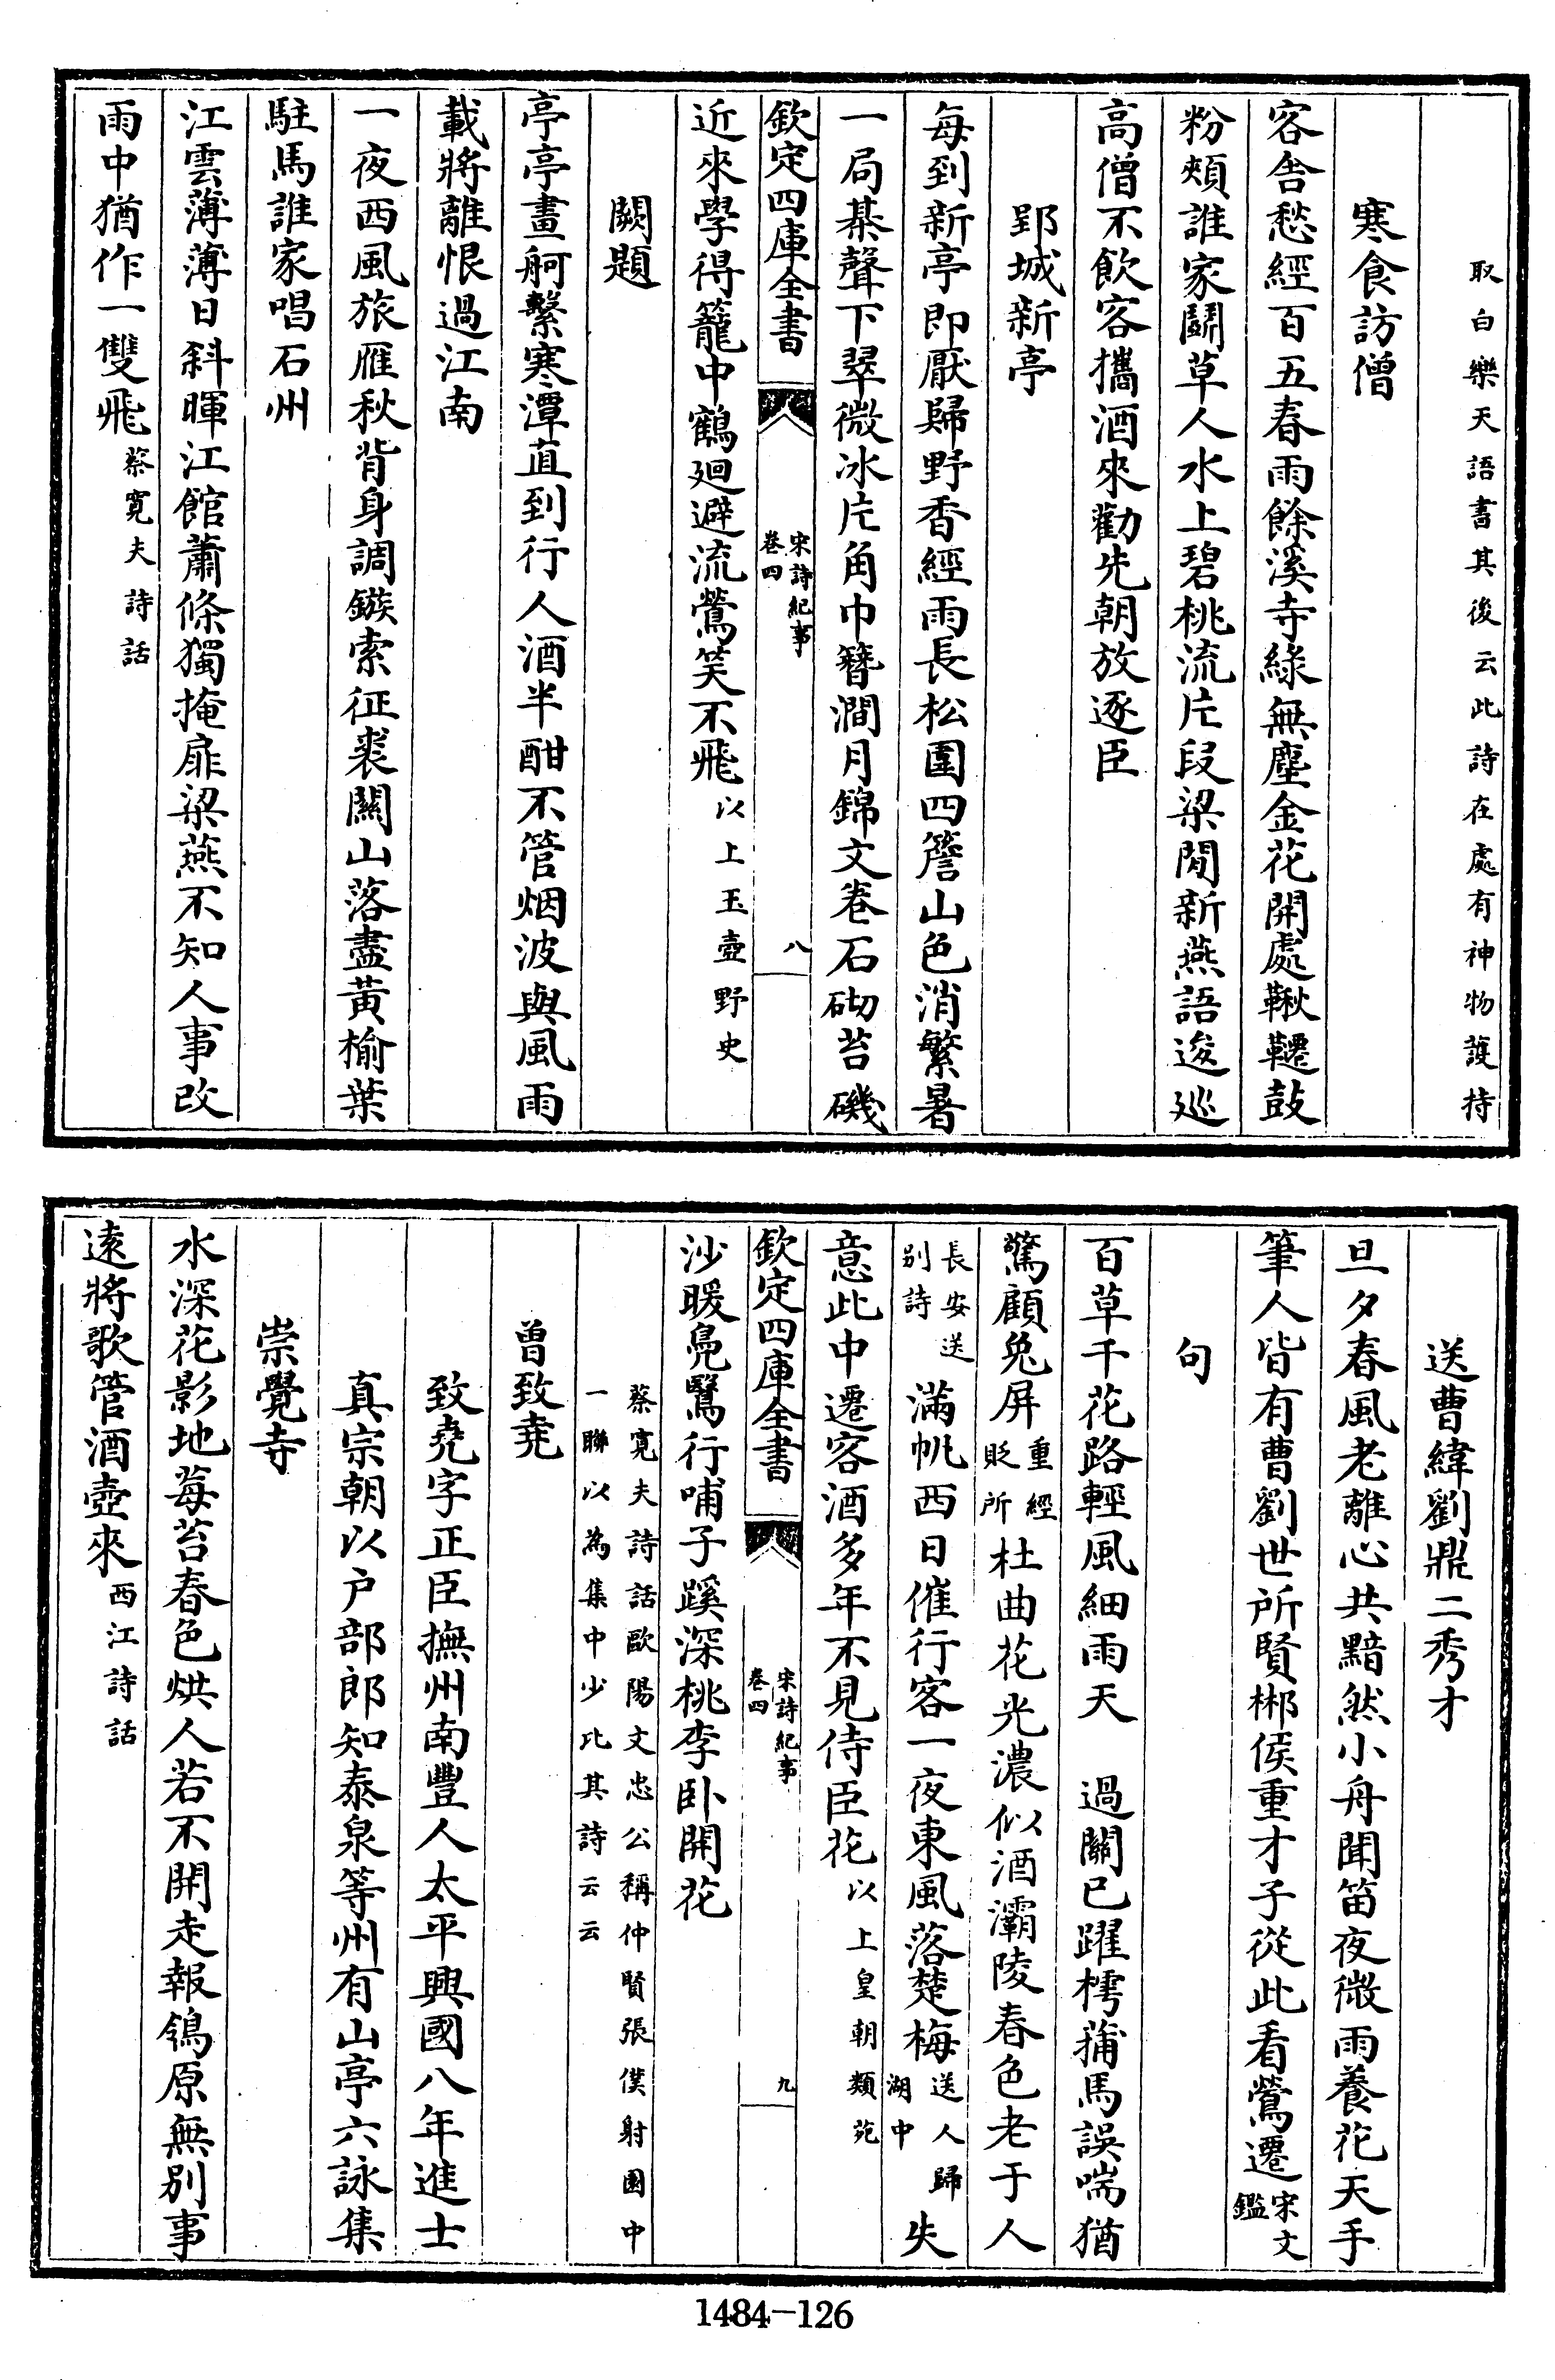 取白樂天語書其後云此詩在處有神物護持
寒食訪僧
客舍愁經百五春雨餘溪寺綠無塵金花開處鞦韆鼓
粉頰誰家鬬草人水上碧桃流片段梁間新燕語逡巡
高僧不飲客攜酒來勸先朝放逐臣
郢城新亭
每到新亭即厭歸野香經雨長松圍四簷山色消繁暑
一局棊聲下翠微冰片角巾簪澗月錦文卷石砌苔磯
欽定四庫全書
宋詩紀事
卷四
八
近來學得籠中鶴廻避流鶯笑不飛以上玉壺野史
闕題
亭亭畫舸繫寒潭直到行人酒半酣不管烟波與風雨
載將離恨過江南
一夜西風旅雁秋背身調鏃索征裘關山落盡黃榆葉
駐馬誰家唱石州
江雲薄薄日斜暉江館蕭條獨掩扉梁燕不知人事改
雨中猶作一雙飛蔡寛夫詩話
送曹緯劉鼎二秀才
旦夕春風老離心共黯然小舟聞笛夜微雨養花天手
筆人皆有曹劉世所賢郴侯重才子從此看鶯遷宋文
鑑
句
百草千花路輕風細雨天　過關已躍樗蒱馬誤喘猶
驚顧兔屏重經
貶所杜曲花光濃似酒灞陵春色老于人
長安送
別詩滿帆西日催行客一夜東風落楚梅送人歸
湖中失
意此中遷客酒多年不見侍臣花以上皇朝類苑
欽定四庫全書
宋詩紀事
卷四
九
沙暖鳧鷖行哺子蹊深桃李卧開花
蔡寛夫詩話歐陽文忠公稱仲賢張僕射園中
一聯以為集中少比其詩云云
曾致堯
致堯字正臣撫州南豐人太平興國八年進士
真宗朝以户部郎知泰泉等州有山亭六詠集
崇覺寺
水深花影地莓苔春色烘人若不開走報鴒原無別事
遠將歌管酒壺來西江詩話
1484-126